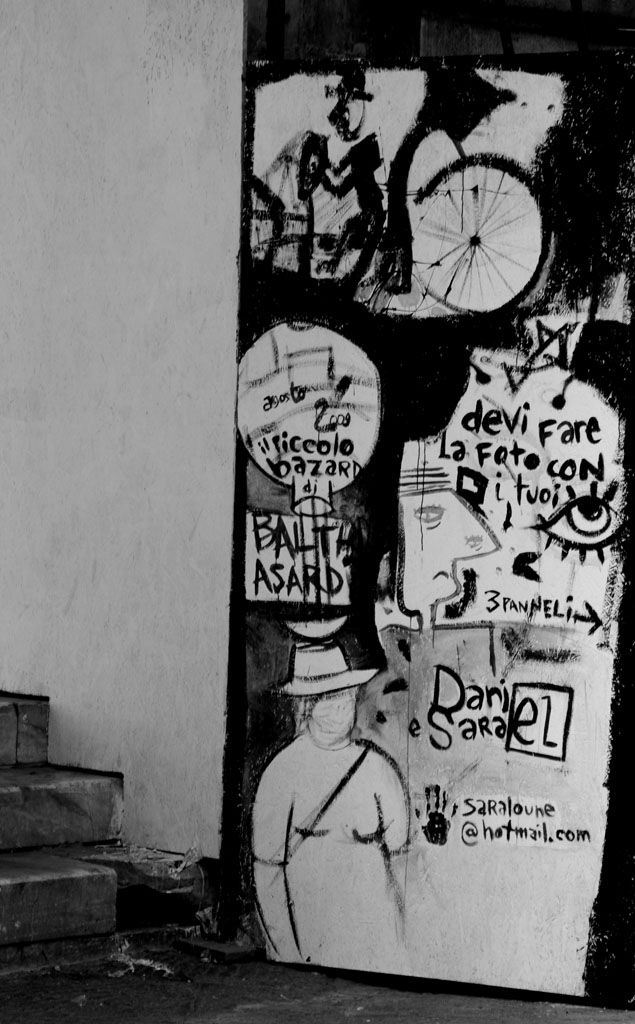 agosto
2009
il Piccolo
bazard
di
BALTH
ASARD
devi fare
La Foto CON
i tuoi
3 PANNELI
Dani
e Sara
el
saraloune
@hotmail.com